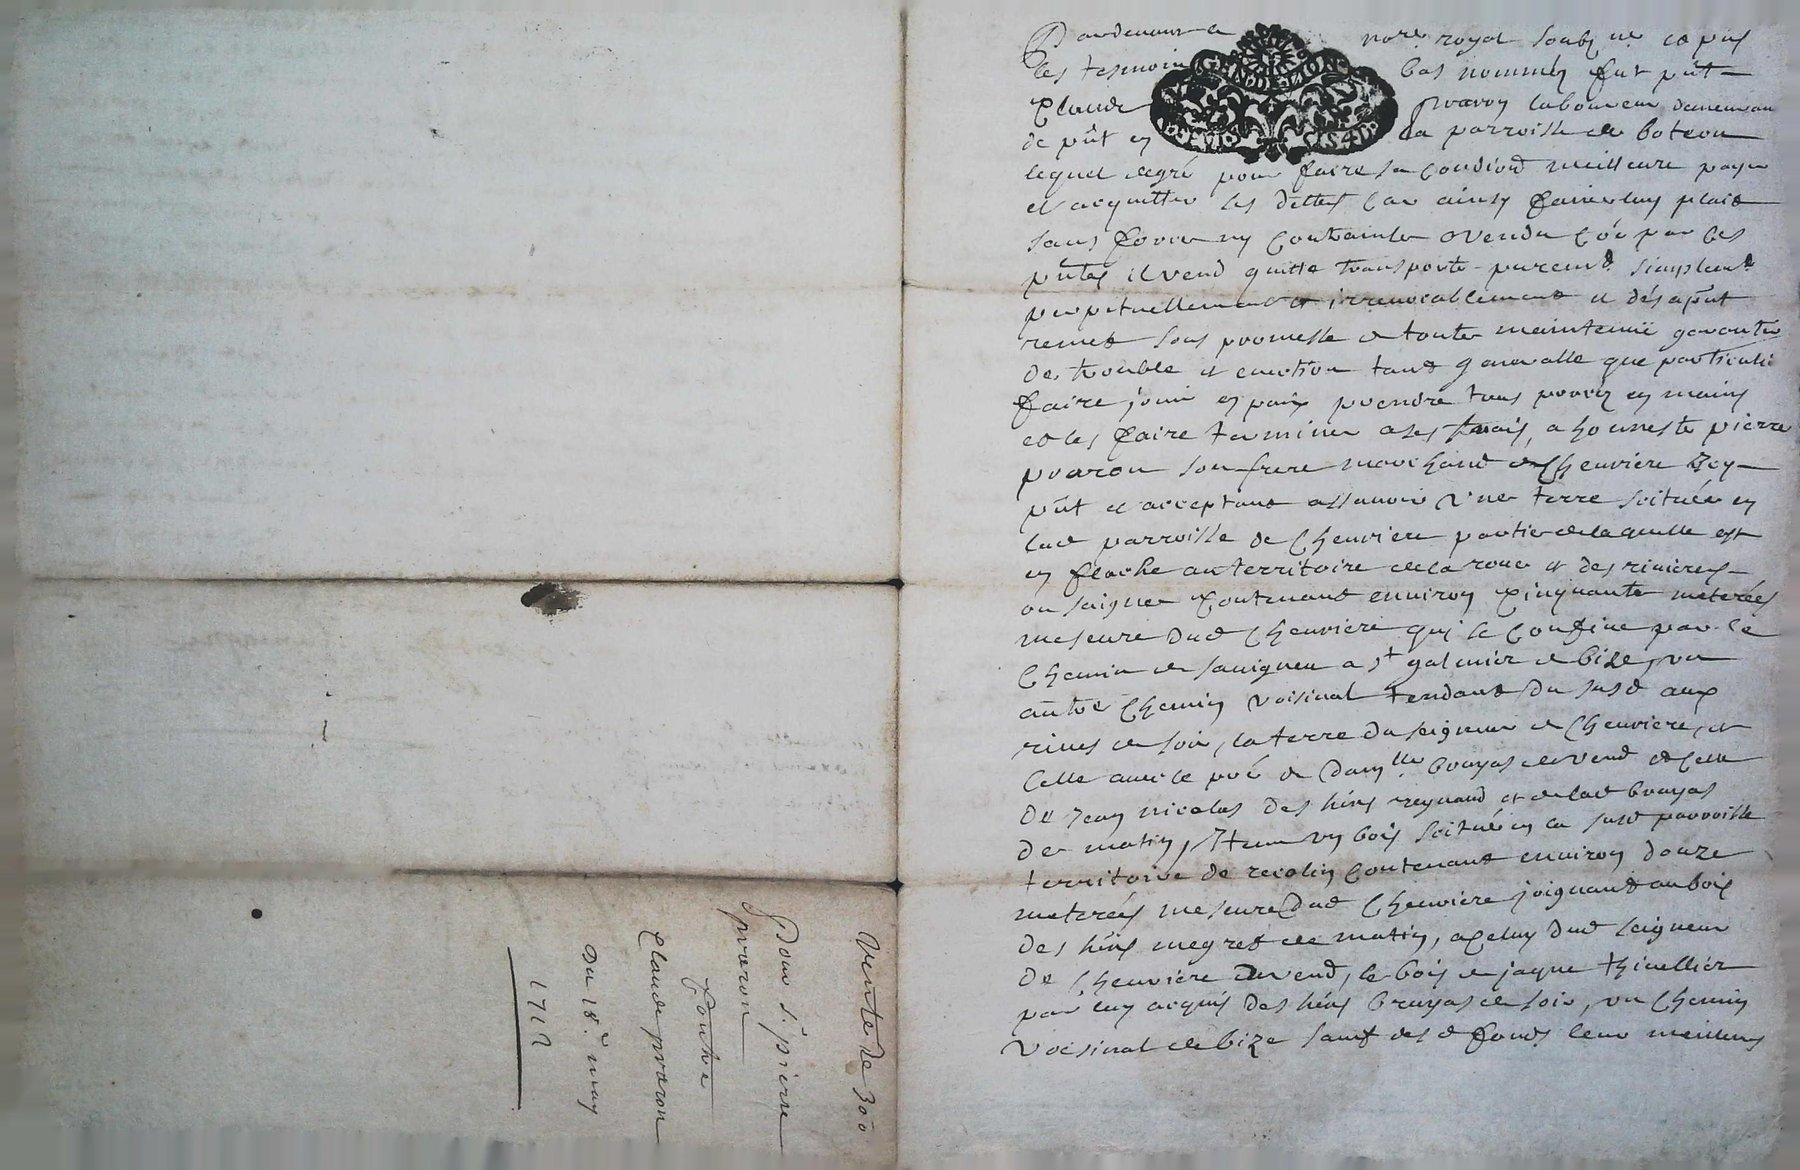 Pardevant le nore. royal soubz ne. et pns
les tesmoins bas nommés fut pnt
Claude praron laboureur demeurant
de pnt en la parroisse de boteon
lequel de gré pour faire sa condiond meilleure payer
et acquitter ses dettes car ainsy faire luy plait
sans force ny contrainte a vendu coe par ces
pntes il vend quitte transporte puremt. simplemt.
perpetuellement et irrevocablement et dés apnt
remet sous promesse de toute maintenüe garantie
de trouble et eviction tant generalle que particuli
faire jouir en paix prendre tous procez en mains
et les faire terminer a ses frais, a honneste pierre
praron son frere marchand de Cheuviere Icy
pnt et acceptant assavoir une terre scituée en
lad parroisse de Cheuviere partie de laquelle est
en flache au territoire de la roue et des rivieres
ou saigne contenant environ cinquante meterées
meseure dud Cheuviere qui se confine par le
chemin de sauigneu a st galmier de bize, un
autre chemin voisinal tendant du susd aux
rives de soir, la terre du seigneur de Cheuviere, et
celle avec le pré de damlle. bruyas de vend et celle
de Jean nicolas des hers reynaud et de lad bruyas
de matin, Item un bois scitué en la susd parroisse
territoire de recolin contenant environ douze
meterées meseure dud Cheuviere joignant au bois
des hers megret de matin, a celuy dud seigneur
de Cheuviere de vend, le bois de jaque thivellier
par luy acquis des hers bruyas de soir, un chemin
voisinal de bize sauf desd fonds leur meilleurs
Vente de 300
Pour sr. pierre
praron
Contre
Claude praron
Du 18e. may
1712